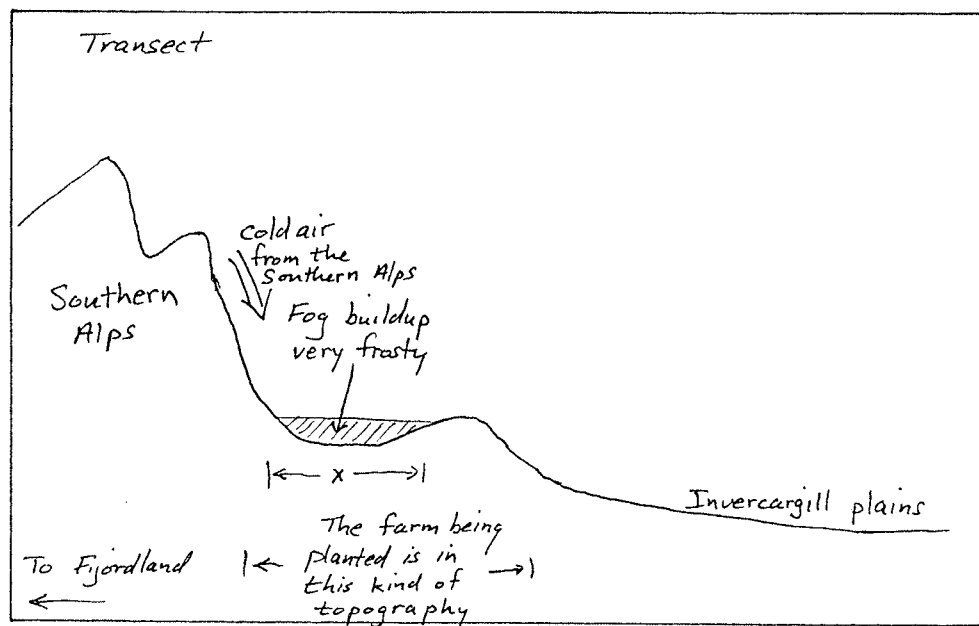 Transect
cold air
from the
Southern Alps
Southern
Alps
Fog buildup
very frosty
x
Invercargill plains
The farm being
planted is in
this kind of
topography
To Fijordland